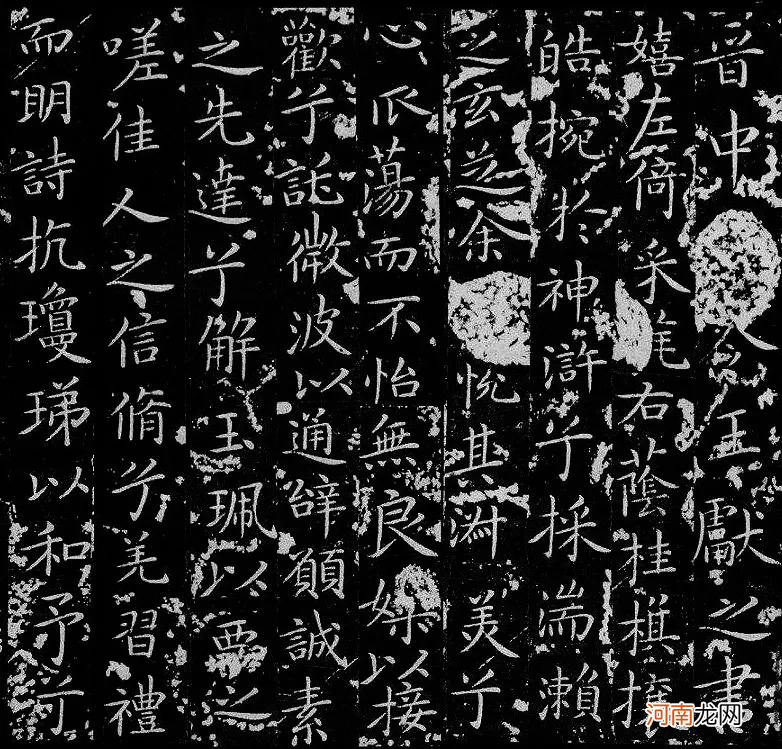 晉中令王獻之書
嬉左倚采旄右蔭桂旗攘
皓捥於神滸兮採湍瀨
之玄芝余悅其淑美兮
心振蕩而不怡無良媒以接
歡兮託微波以通辭願誠素
之先達兮解玉珮以要之
嗟佳人之信脩兮羌習禮
而明詩抗瓊珶以和予兮
河南龙网